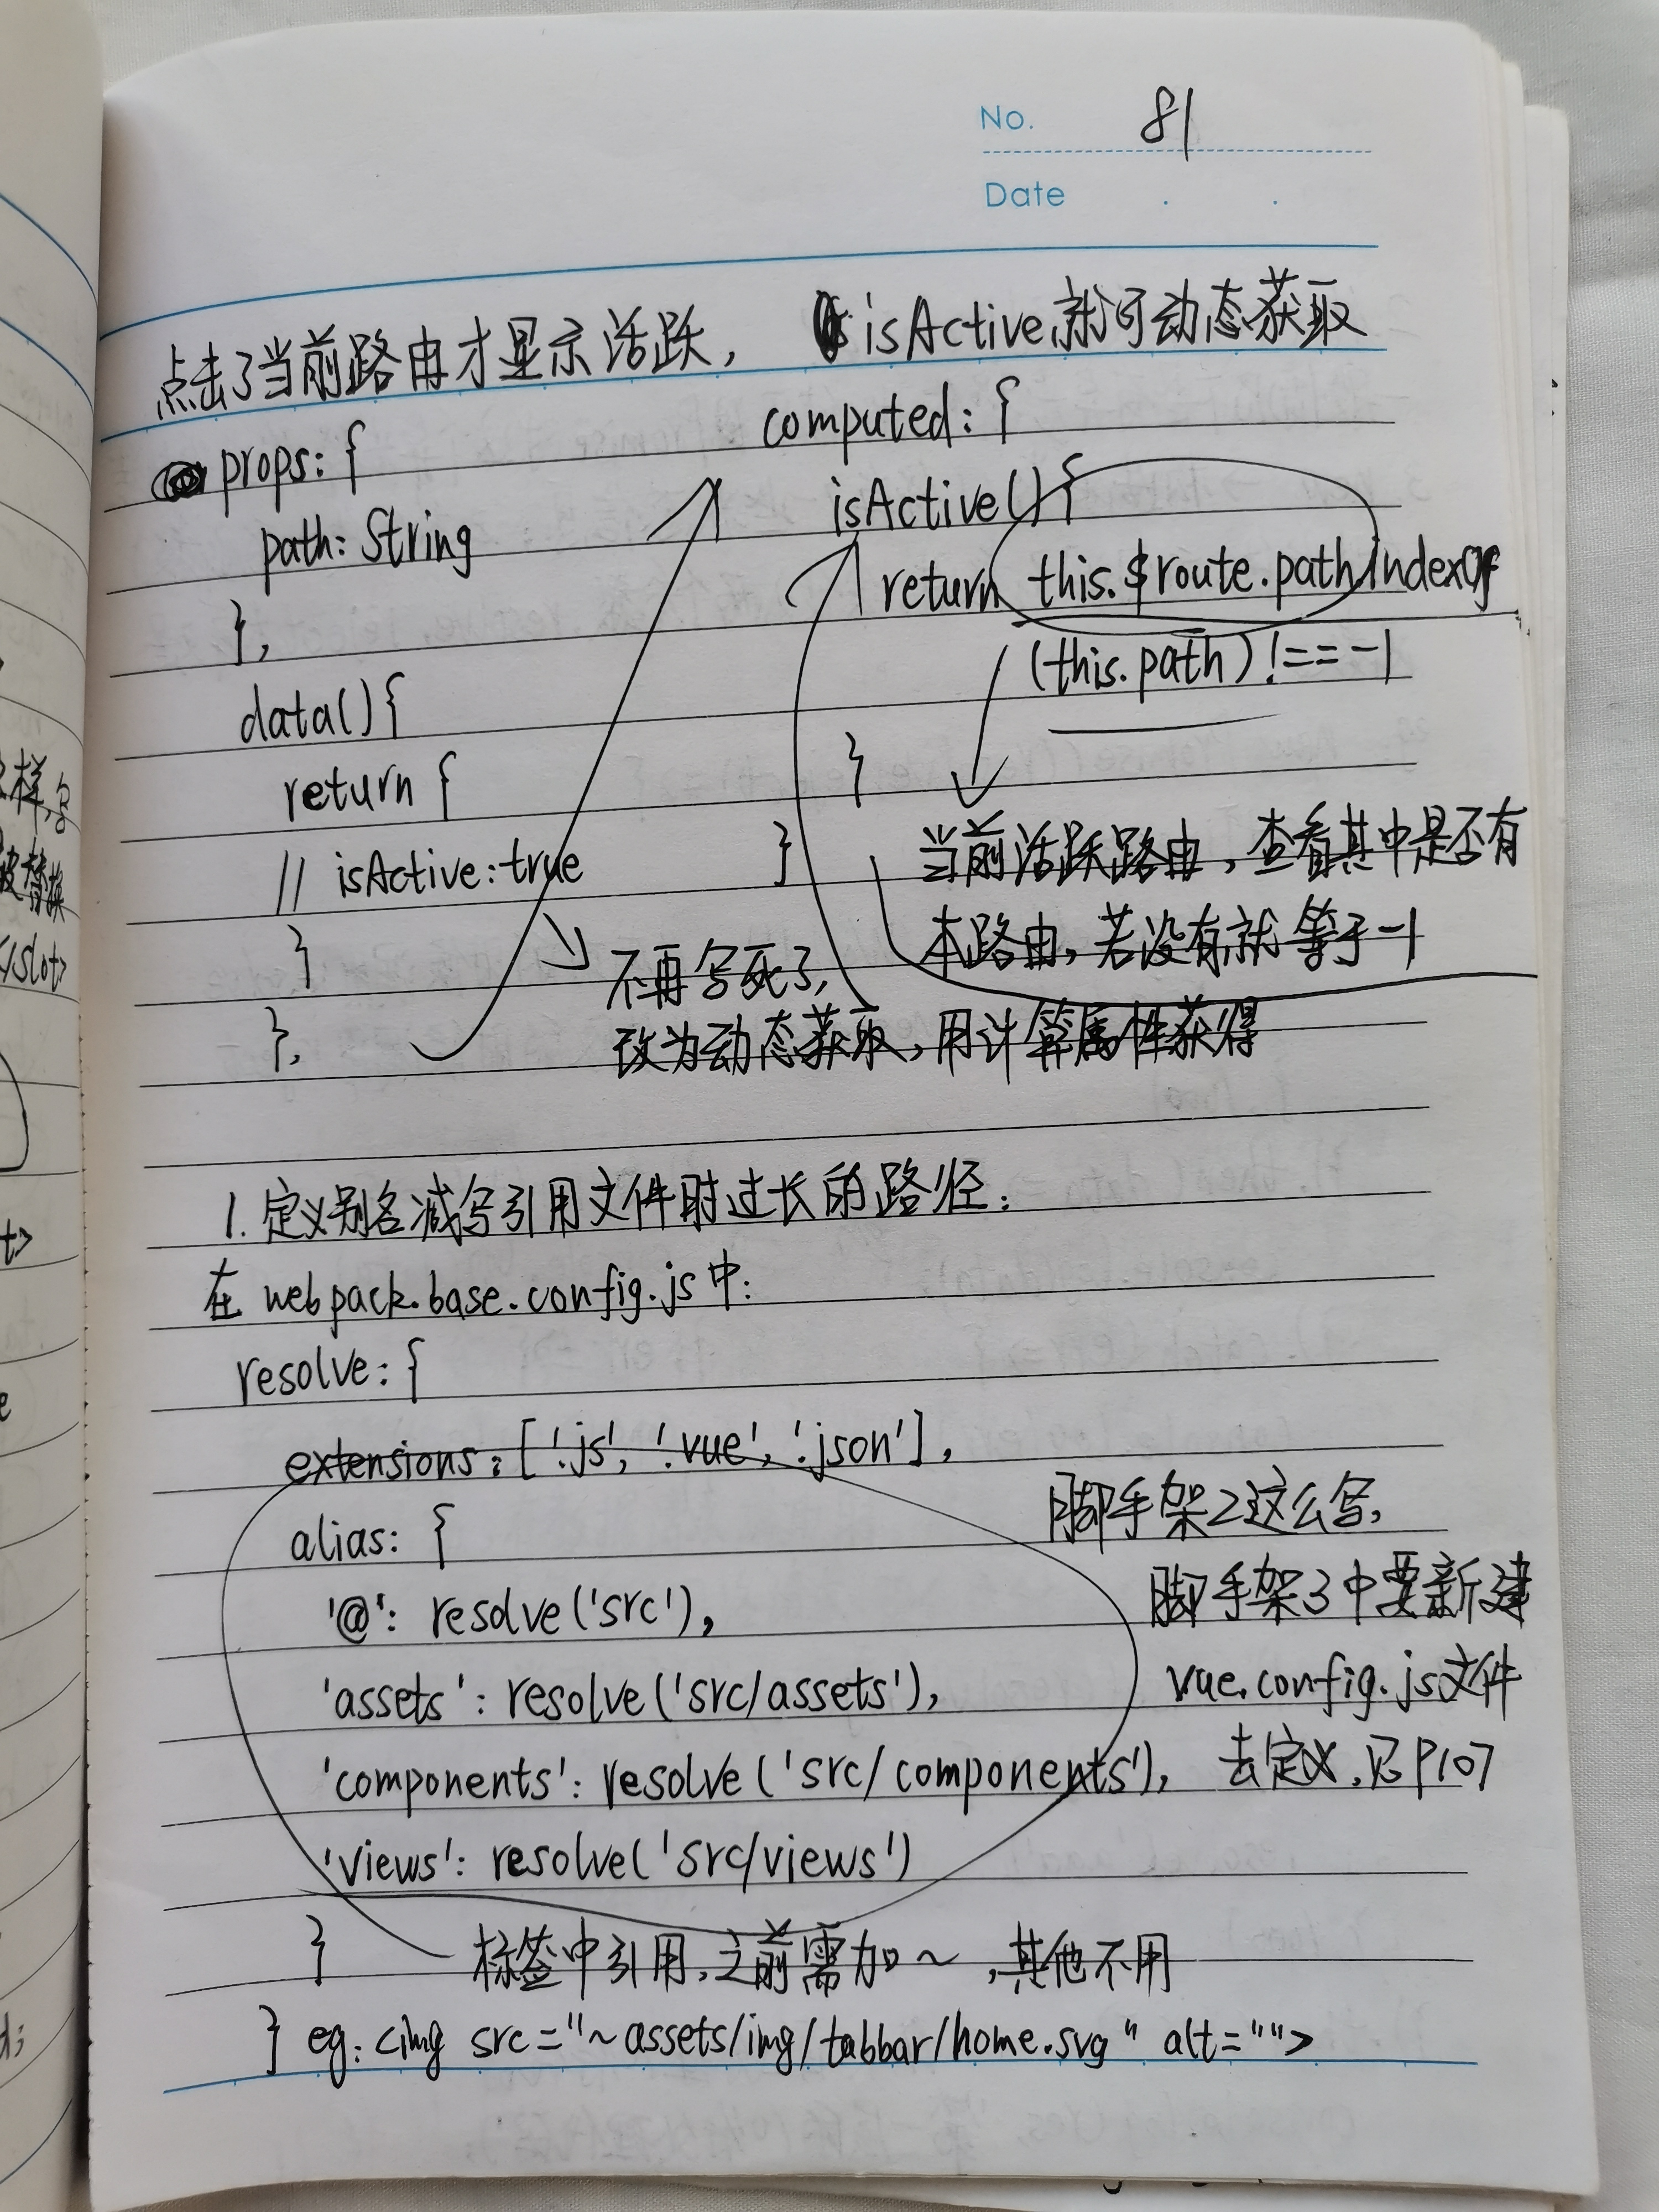 No. 81
Date . .
点击了当前路由才显示活跃, isActive就可动态获取
props: {
path: String
},
data() {
return {
// isActive: true
}
},
不再写死了,
改为动态获取,用计算属性获得
computed: {
isActive() {
return this.$route.path.indexOf
(this.path) !== -1
}
}
当前活跃路由,查看其中是否有
本路由,若没有就等于-1
1. 定义别名减写引用文件时过长的路径:
在 webpack.base.config.js 中:
resolve: {
extensions: ['.js', '.vue', '.json'],
alias: {
'@': resolve('src'),
'assets': resolve('src/assets'),
'components': resolve('src/components'),
'views': resolve('src/views')
}
脚手架2这么写,
脚手架3中要新建
vue.config.js文件
去定义,见P107
标签中引用,之前需加~,其他不用
} eg: <img src="~assets/img/tabbar/home.svg" alt="">
样,写
被替换
</slot>
t>
e